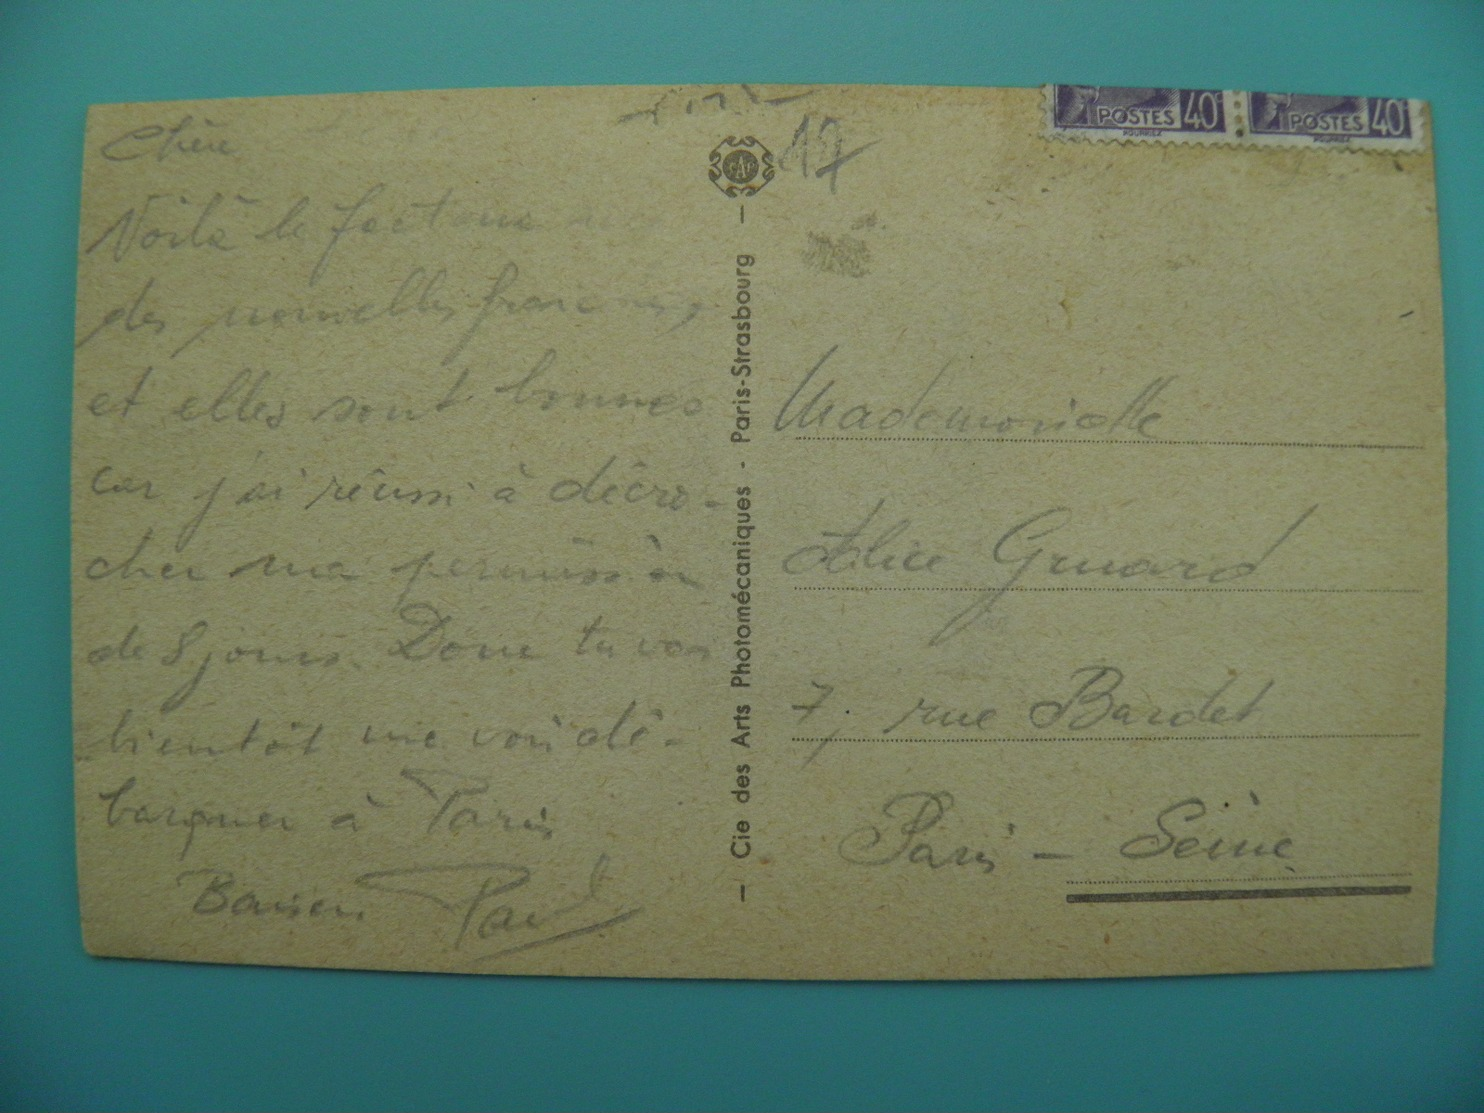 Chère
Voilà le facteur
des nouvelles
et elles sont bonnes
car j'ai réussi à décro-
cher ma permission
de 8 jours. Donc tu vas
bientôt me voir dé-
barquer à Paris
Baisers Paul
CAP
- Cie des Arts Photomécaniques - Paris-Strasbourg -
17
POSTES 40c POSTES 40c
Mademoiselle
Alice Gruard
7, rue Bardet
Paris - Seine